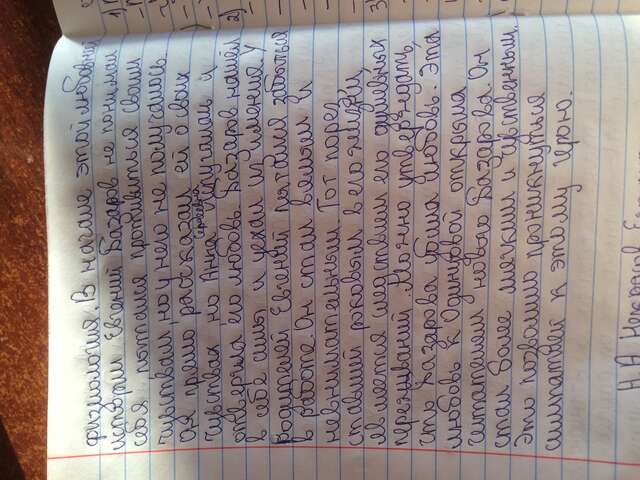 физиология. В начале этой любовной
истории Евгений Базаров не понимал
себя пытался противиться своим
чувствам, но у него не получалось.
Он прямо рассказал ей о своих
чувствах но Анна Сергеевна испугалась и
отвергла его любовь. Базаров нашёл
в себе силы и уехал из имения. У
родителей Евгений пытался забыться
в работе. Он стал вялым и
невнимательным. Тот порез,
ставший роковым в его жизни,
является следствием его душевных
переживаний. Можно утверждать,
что Базарова убила любовь. Эта
любовь к Одинцовой открыла
читателям нового Базарова. Он
стал более мягким и чувственным.
Это позволило проникнуться
симпатией к этому герою.
Н.А Некрасов
1)
2)
3)